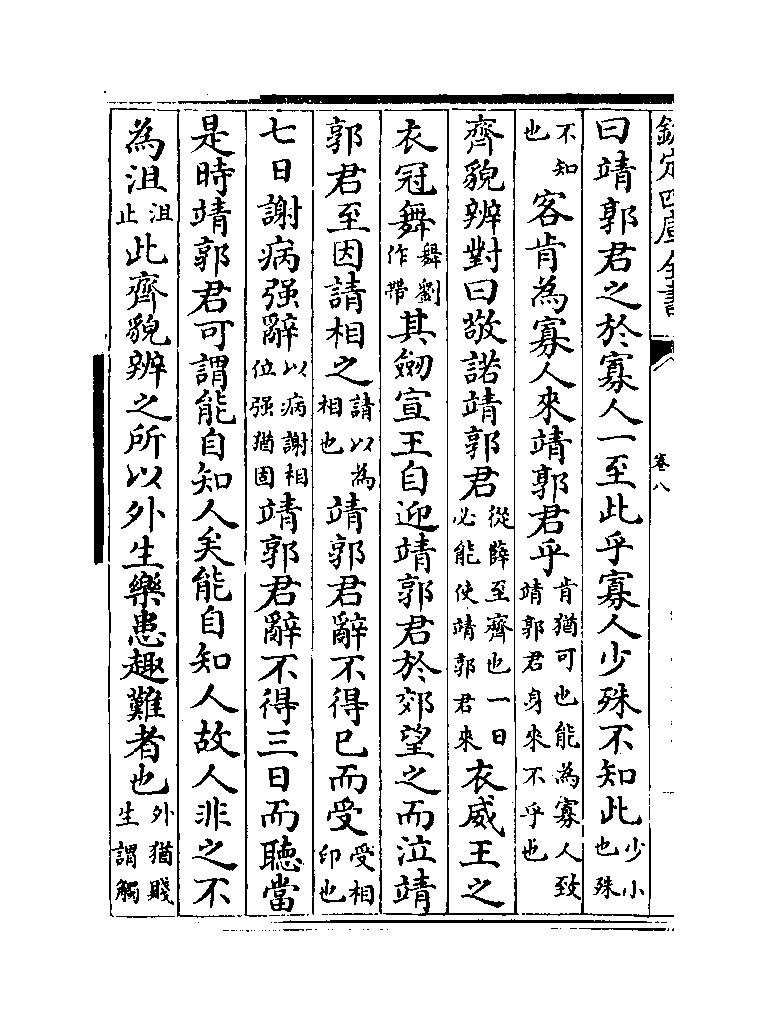 欽定四庫全書 卷八
曰靖郭君之於寡人一至此乎寡人少殊不知此少小也殊
不知也客肯為寡人來靖郭君乎肯猶可也能為寡人致靖郭君身來不乎也
齊貌辨對曰敬諾靖郭君從薛至齊也一曰必能使靖郭君來衣威王之
衣冠舞舞劉作帶其劒宣王自迎靖郭君於郊望之而泣靖
郭君至因請相之請以為相也靖郭君辭不得已而受受相印也
七日謝病强辭以病謝相位强猶固靖郭君辭不得三日而聽當
是時靖郭君可謂能自知人矣能自知人故人非之不
為沮沮止此齊貌辨之所以外生樂患趣難者也外猶賤生謂觸